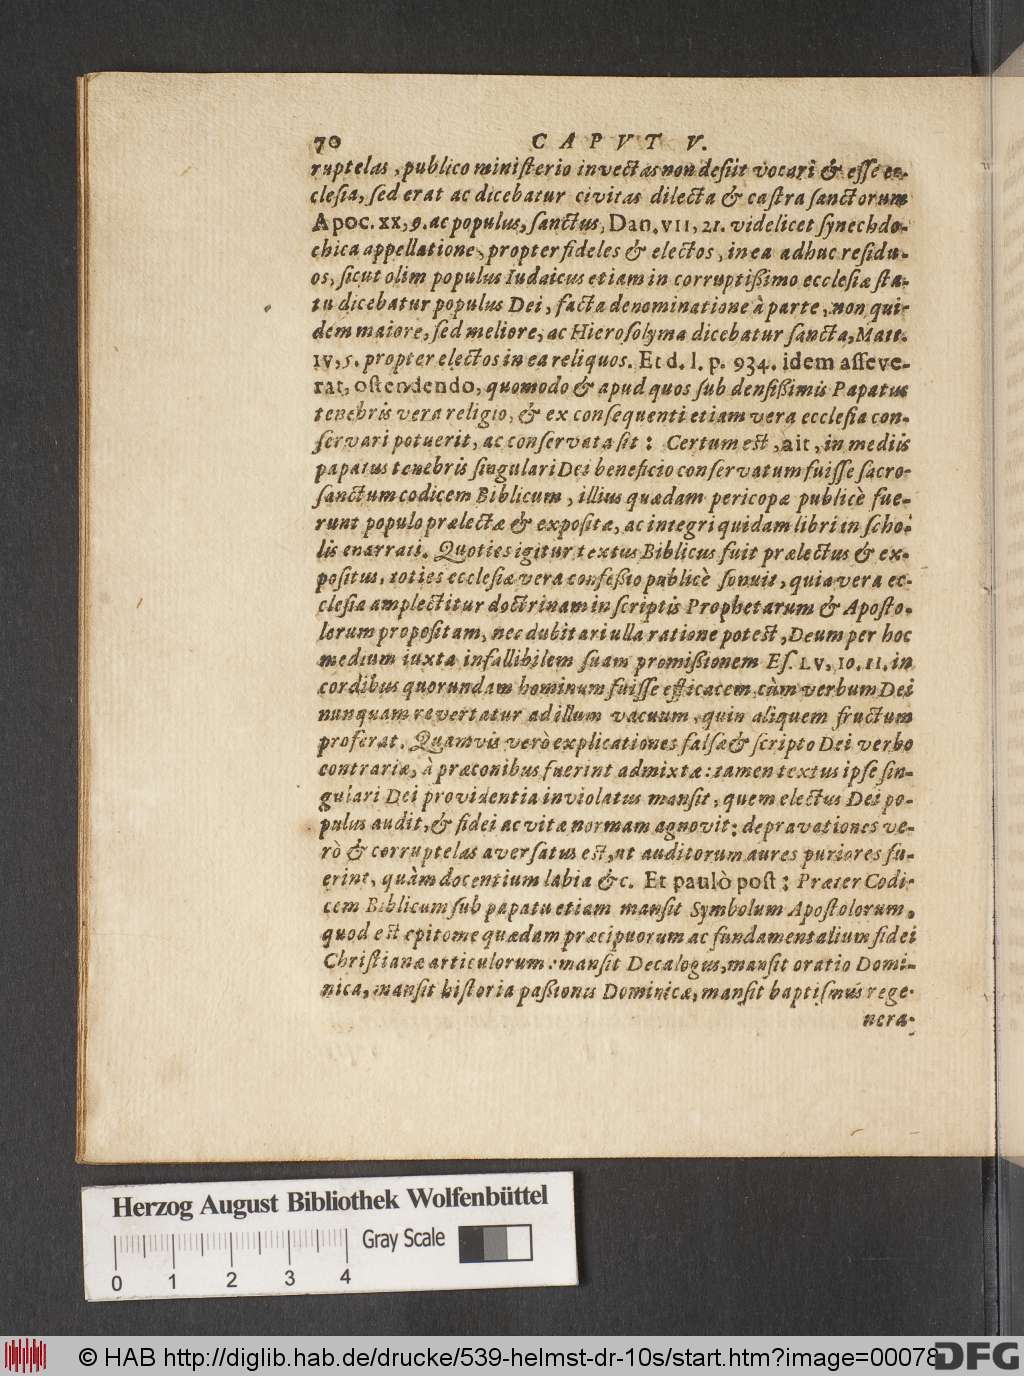 70 CAPVT V.
ruptelas, publico ministerio invectas non desiit vocari & esse ec-
clesia, sed erat ac dicebatur civitas dilecta & castra sanctorum
Apoc. XX, 9. ac populus, sanctus, Dan. VII, 21. videlicet synechdo-
chica appellatione, propter fideles & electos, in ea adhuc residu-
os, sicut olim populus Iudaicus etiam in corruptißimo ecclesiæ sta-
tu dicebatur populus Dei, facta denominatione à parte, non qui-
dem maiore, sed meliore, ac Hierosolyma dicebatur sancta, Matt.
IV, 5. propter electos in ea reliquos. Et d. l. p. 934. idem asseve-
rat, ostendendo, quomodo & apud quos sub densißimis Papatus
tenebris vera religio, & ex consequenti etiam vera ecclesia con-
servari potuerit, ac conservata sit: Certum est, ait, in mediis
papatus tenebris singulari Dei beneficio conservatum fuisse sacro-
sanctum codicem Biblicum, illius quædam pericopæ publicè fue-
runt populo prælectæ & expositæ, ac integri quidam libri in scho-
lis enarrati. Quoties igitur textus Biblicus fuit prælectus & ex-
positus, toties ecclesiæ vera confeßio publicè sonuit, quia vera ec-
clesia amplectitur doctrinam in scriptis Prophetarum & Aposto-
lorum propositam, nec dubitari ulla ratione potest, Deum per hoc
medium iuxta infallibilem suam promißionem Es. LV, 10. 11. in
cordibus quorundam hominum fuisse efficacem, cùm verbum Dei
nunquam revertatur ad illum vacuum, quin aliquem fructum
proferat. Quamvis verò explicationes falsæ & scripto Dei verbo
contrariæ, à præconibus fuerint admixtæ: tamen textus ipse sin-
gulari Dei providentia inviolatus mansit, quem electus Dei po-
pulus audit, & fidei ac vitæ normam agnovit: depravationes ve-
rò & corruptelas aversatus est, ut auditorum aures puriores fu-
erint, quàm docentium labia &c. Et paulò post: Præter Codi-
cem Biblicum sub papatu etiam mansit Symbolum Apostolorum,
quod est epitome quædam præcipuorum ac fundamentalium fidei
Christianæ articulorum: mansit Decalogus, mansit oratio Domi-
nica, mansit historia paßionis Dominicæ, mansit baptismus rege-
nera-
Herzog August Bibliothek Wolfenbüttel
Gray Scale
0 1 2 3 4
© HAB http://diglib.hab.de/drucke/539-helmst-dr-10s/start.htm?image=00078
DFG